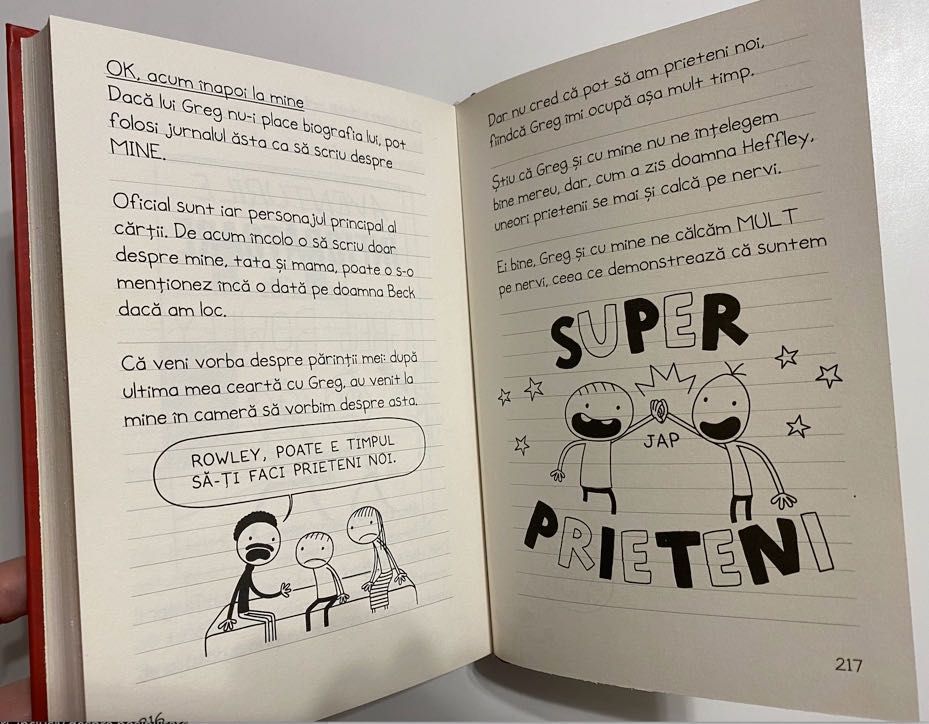 OK, acum înapoi la mine
Dacă lui Greg nu-i place biografia lui, pot
folosi jurnalul ăsta ca să scriu despre
MINE.
Oficial sunt iar personajul principal al
cărții. De acum încolo o să scriu doar
despre mine, tata și mama, poate o s-o
menționez încă o dată pe doamna Beck
dacă am loc.
Că veni vorba despre părinții mei: după
ultima mea ceartă cu Greg, au venit la
mine în cameră să vorbim despre asta.
ROWLEY, POATE E TIMPUL
SĂ-ȚI FACI PRIETENI NOI.
Dar nu cred că pot să am prieteni noi,
fiindcă Greg îmi ocupă așa mult timp.
Știu că Greg și cu mine nu ne înțelegem
bine mereu, dar, cum a zis doamna Heffley,
uneori prietenii se mai și calcă pe nervi.
Ei bine, Greg și cu mine ne călcăm MULT
pe nervi, ceea ce demonstrează că suntem
SUPER
JAP
PRIETENI
217